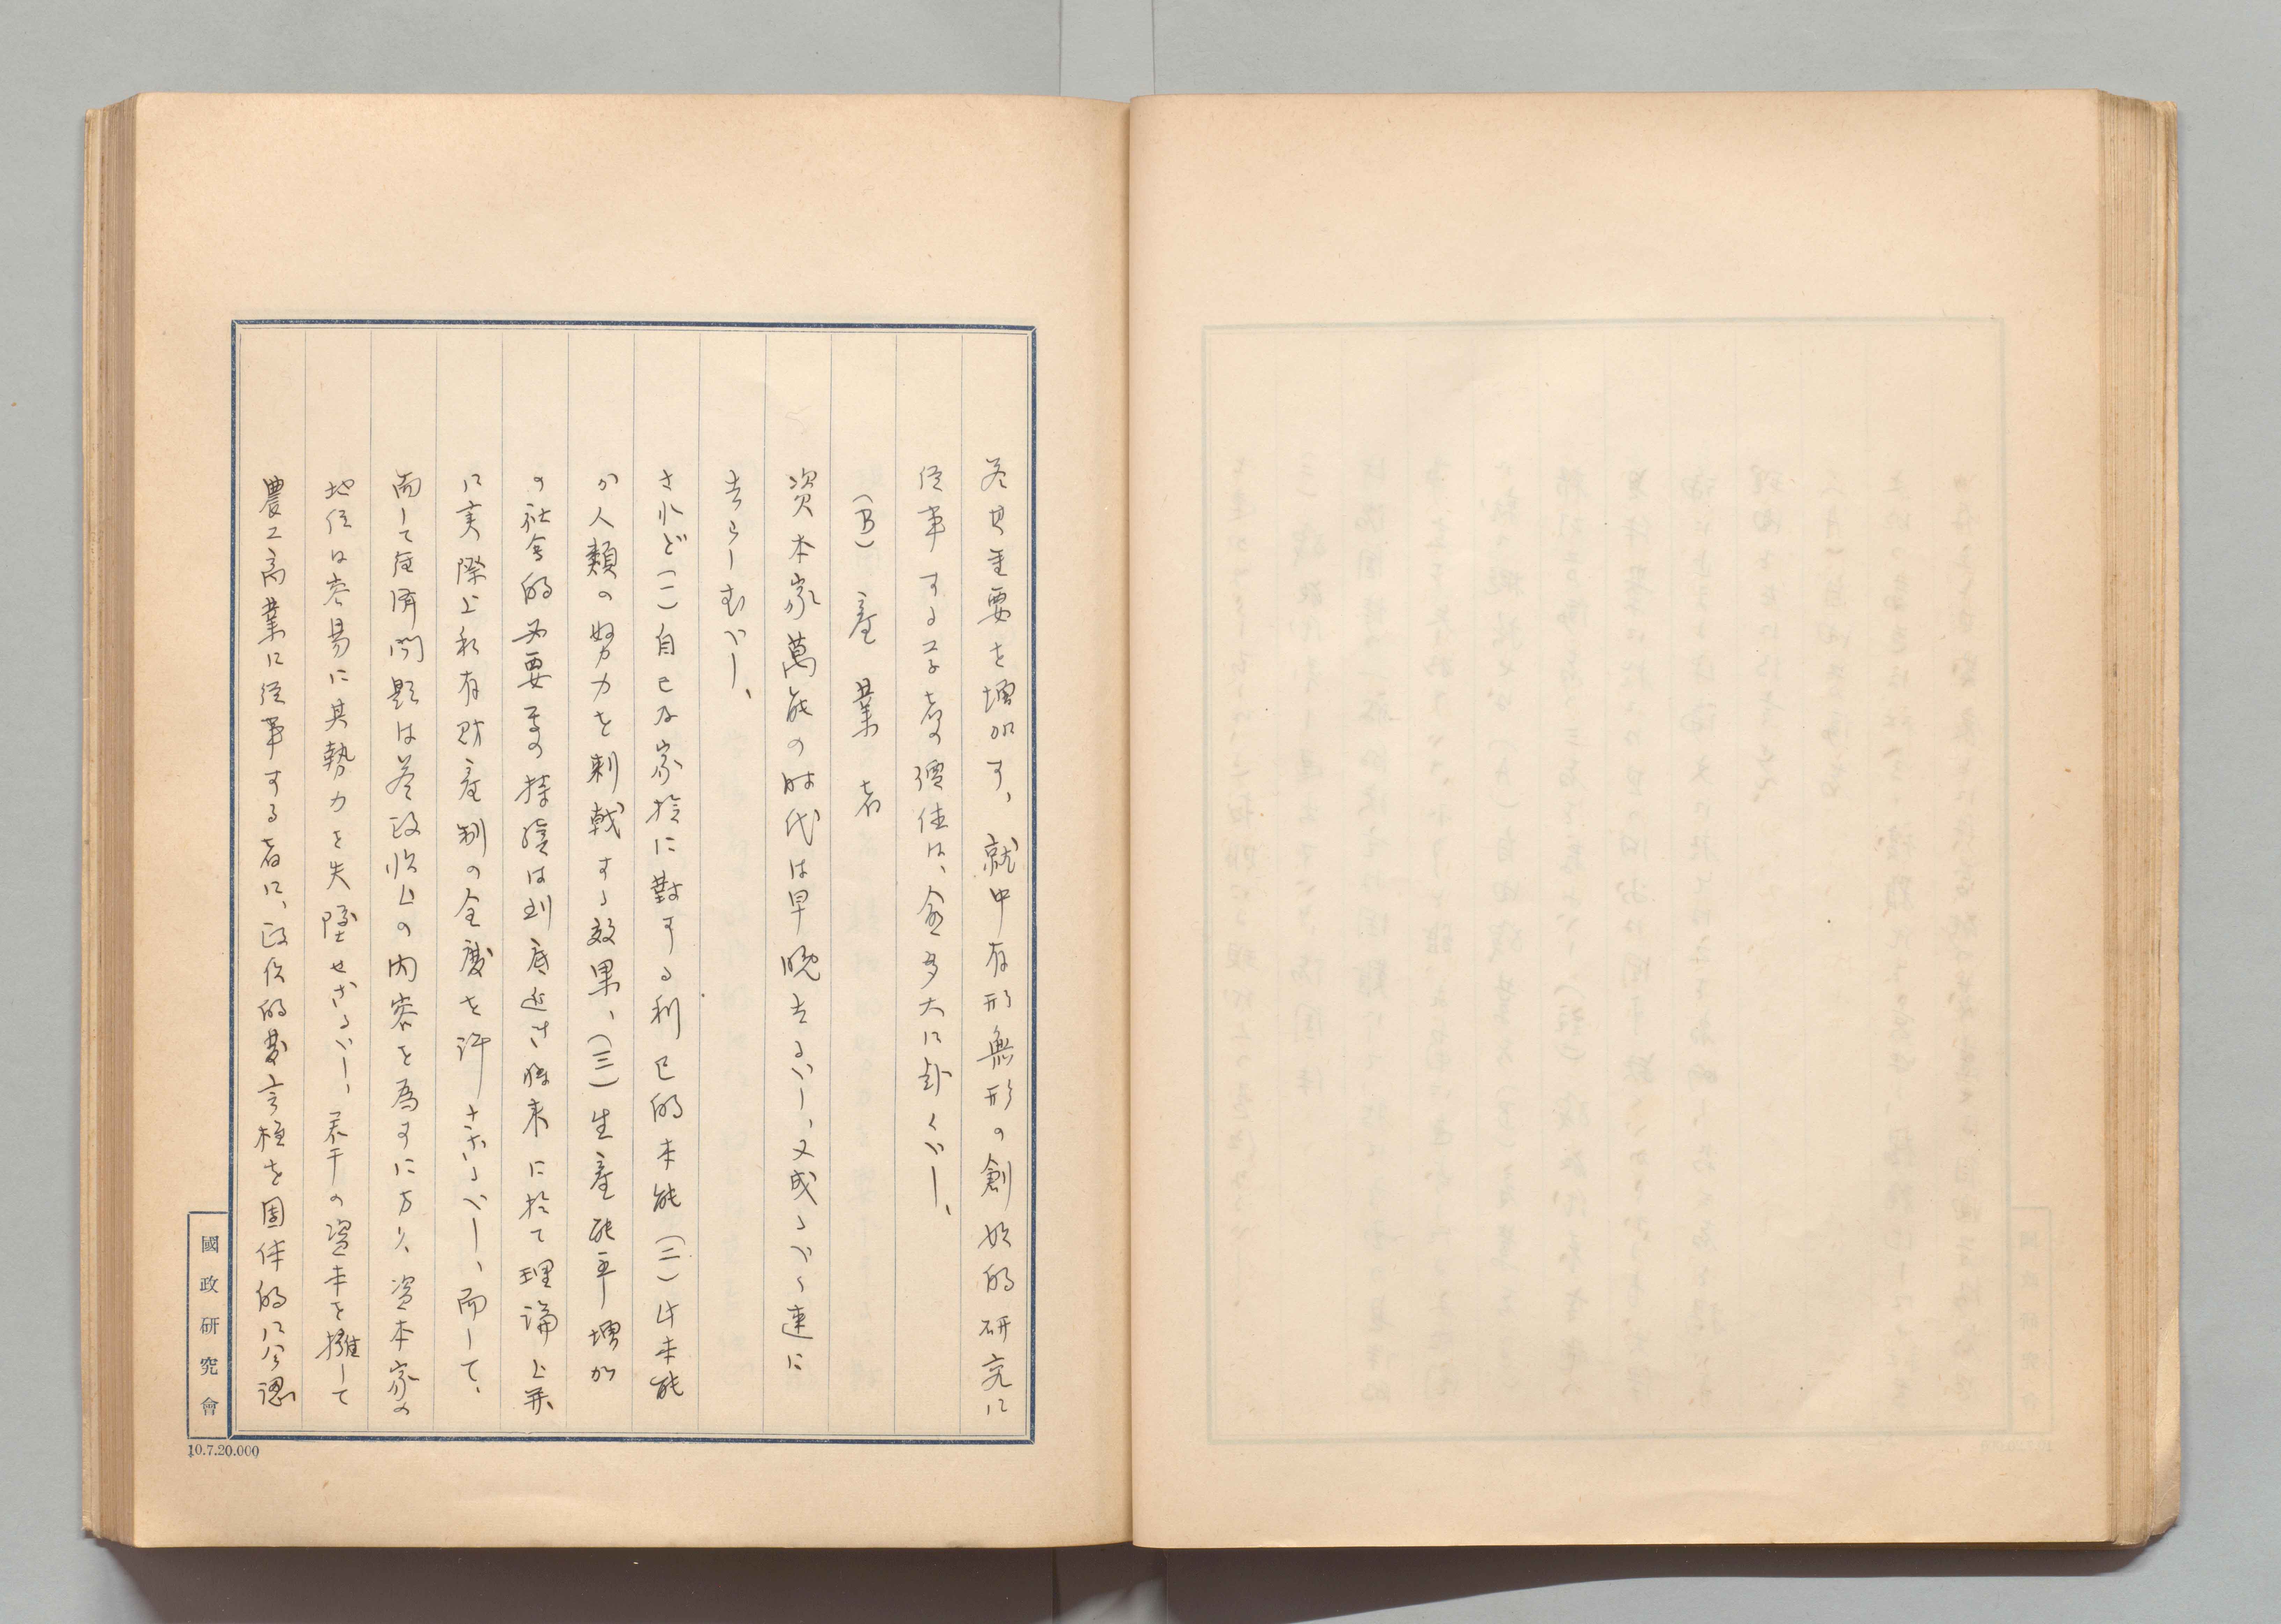 益其重要を増加す、就中有形無形の創始的研究に
従事する学者の価値は、愈多大に赴くべし、
(B)産業者
資本家萬能の時代は早晩去るべし、又成るべく速に
去らしむべし、
されど(一)自己及家族に對する利己的本能(二)此本能
か人類の努力を刺戟する效果、(三)生産能率増加
の社会的必要等の持續は到底近き将来に於て理論上并
に実際上私有財産制の全廃を許さざるべし、而して、
而して経済問題は益政治上の内容を為すに方り、資本家の
地位は容易に其勢力を失墜せざるべし、若干の資本を擁して
農工商業に従事する者に、政治的發言権を團体的に公認
國政研究會
10.7.20.000